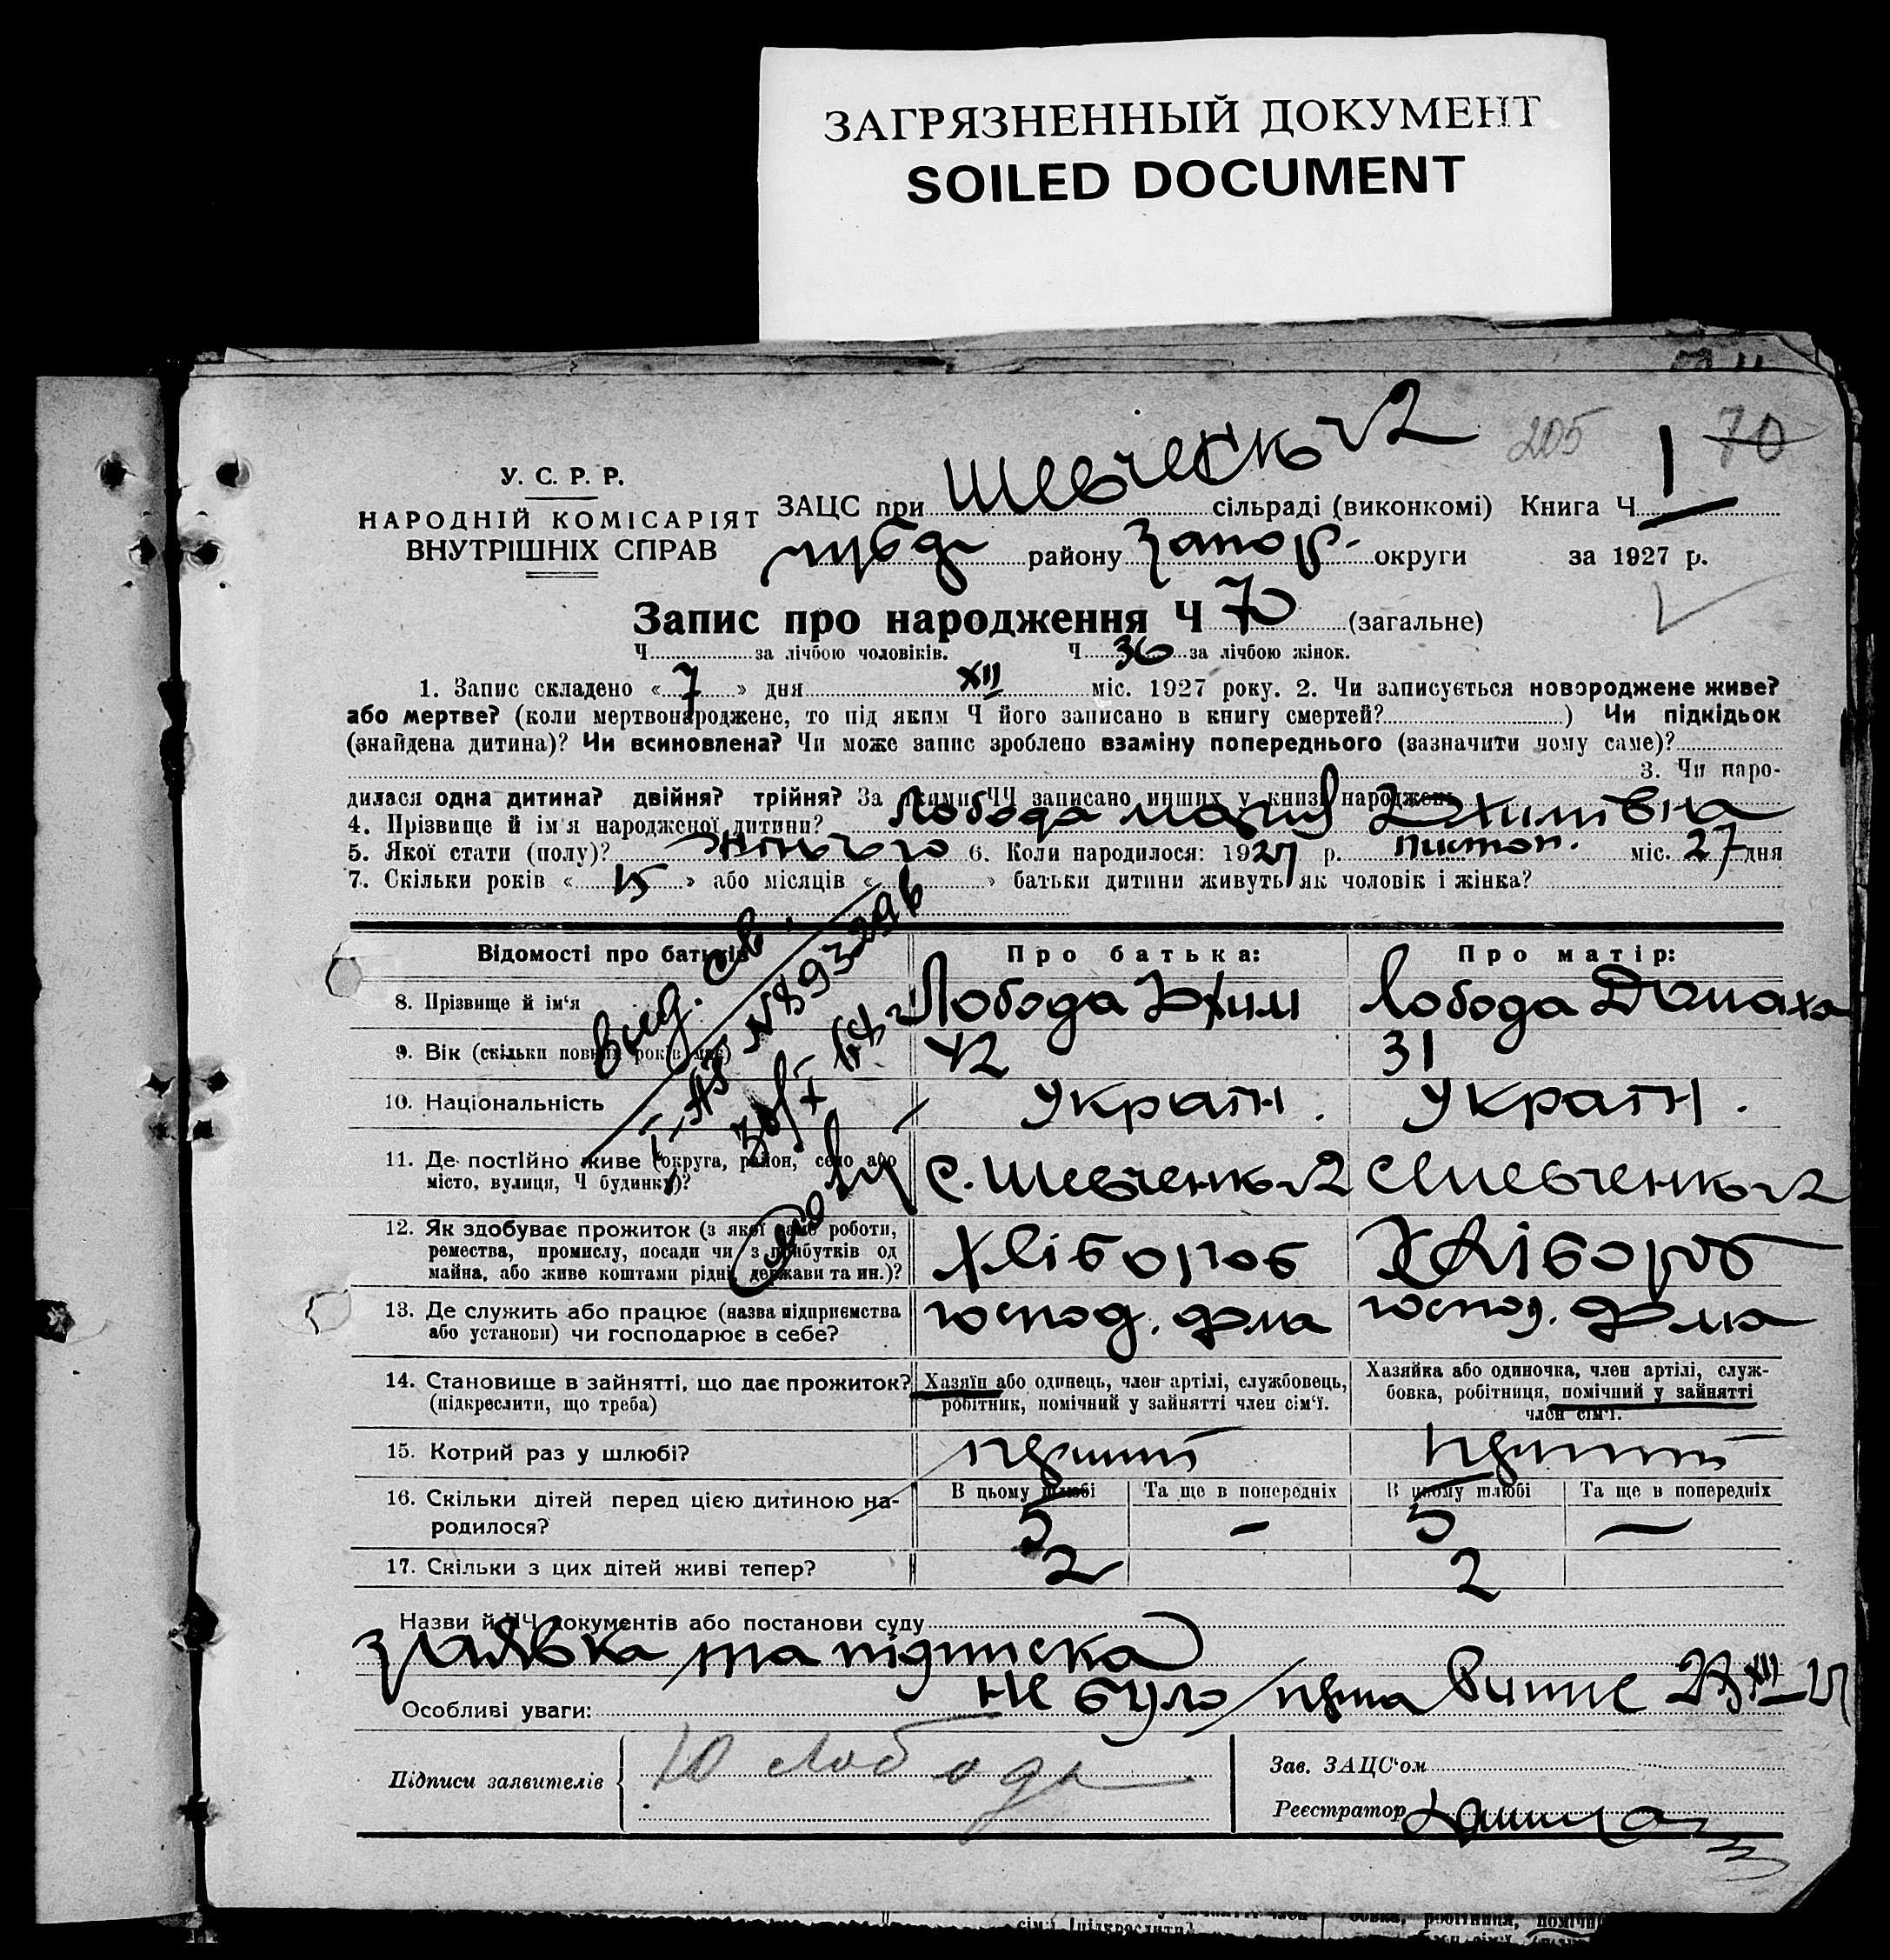 ЗАГРЯЗНЕННЫЙ ДОКУМЕНТ
SOILED DOCUMENT
205 1 70
У. С. Р. Р.
НАРОДНІЙ КОМІСАРІЯТ
ВНУТРІШНІХ СПРАВ
ЗАЦС при сільраді (виконкомі) Книга Ч 1
району Запор. округи за 1927 р.
Запис про народження Ч 70 (загальне)
Ч за лічбою чоловіків. Ч 36 за лічбою жінок.
1. Запис складено « 7 » дня XII міс. 1927 року. 2. Чи записується новороджене живе?
або мертве? (коли мертвонароджене, то під яким Ч його записано в книгу смертей? ) Чи підкідьок
(знайдена дитина)? Чи всиновлена? Чи може запис зроблено взаміну попереднього (зазначити чому саме)?
3. Чи наро-
дилася одна дитина? двійня? трійня? За якими ЧЧ записано инших у книзі народжень
4. Прізвище й ім'я народженої дитини? Лобода Юхимівна
5. Якої стати (полу)? 6. Коли народилося: 1927 р. листоп. міс. 27 дня
7. Скільки років « 15 » або місяців « » батьки дитини живуть як чоловік і жінка?
Відомості про батьків
Про батька:
Про матір:
8. Прізвище й ім'я
Лобода Юхим
Лобода Домаха
9. Вік (скільки повних років має)
42
31
10. Національність
Україн.
Україн.
11. Де постійно живе (округа, район, село або
місто, вулиця, Ч будинку)?
12. Як здобуває прожиток (з якої саме роботи,
ремества, промислу, посади чи з прибутків од
майна, або живе коштами рідні, держави та ин.)?
Хлібороб
Хлібороб
13. Де служить або працює (назва підприємства
або установи) чи господарює в себе?
господ. дома
господ. дома
14. Становище в зайнятті, що дає прожиток?
(підкреслити, що треба)
Хазяїн або одинець, член артілі, службовець,
робітник, помічний у зайнятті член сім'ї.
Хазяйка або одиночка, член артілі, служ-
бовка, робітниця, помічний у зайнятті
член сім'ї.
15. Котрий раз у шлюбі?
перший
перший
16. Скільки дітей перед цією дитиною на-
родилося?
В цьому шлюбі Та ще в попередніх
В цьому шлюбі Та ще в попередніх
5 —
5 —
17. Скільки з цих дітей живі тепер?
2
2
Назви й ЧЧ документів або постанови суду
заявка та підписка
Особливі уваги: не було
Підписи заявителів
Ю Лобода
Зав. ЗАЦС'ом
Реєстратор